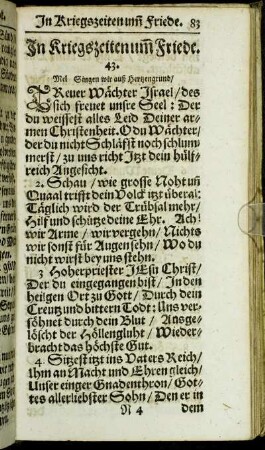 In Kriegszeiten um̃ Friede. 83
In Kriegszeiten um̃ Friede.
43.
Mel Singen wir auß Hertzengrund/
TReuer Wächter Israel/des
sich freuet unsre Seel: Der
du weissest alles Leid Deiner ar-
men Christenheit. O du Wächter/
der du nicht Schläfst noch schlum-
merst/ zu uns richt Itzt dein hülf-
reich Angesicht.
2. Schau/ wie grosse Noht uñ
Quaal trifft dein Volck itzt überal;
Täglich wird der Trübsal mehr/
Hilf und schütze deine Ehr. Ach!
wir Arme/ wir vergehn/ Nichts
wir sonst für Augen sehn/ Wo du
nicht wirst bey uns stehn.
3 Hoherpriester JEsu Christ/
Der du eingegangen bist/ In den
heilgen Ort zu Gott/ Durch dein
Creutz und bittern Todt: Uns ver-
söhnet durch dein Blut/ Ausge-
löscht der Höllenglüht/ Wieder-
bracht das höchste Gut.
4. Sitzest itzt ins Vaters Reich/
Ihm an Macht und Ehren gleich/
Unser einger Gnadenthron/ Got-
tes allerliebster Sohn/ Den er in
N 4 dem